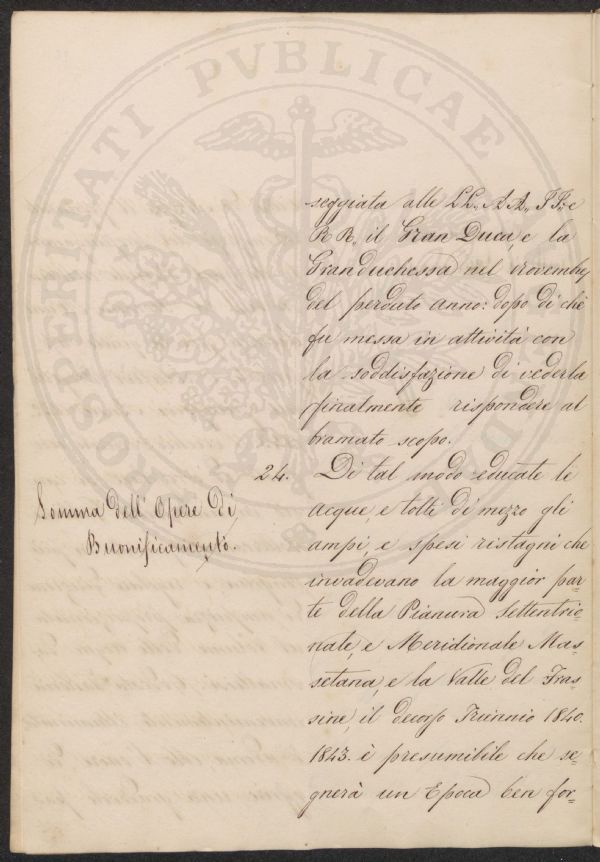 PROSPERITATI PVBLICAE
seggiata alle LL. AA. II. e
RR. il Gran Duca, e la
Granduchessa nel Novembre
del perduto anno: dopo di chè
fu messa in attività con
la soddisfazione di vederla
finalmente rispondere al
bramato scopo.
24. Di tal modo educate le
acque, e tolti di mezzo gli
ampi, e spessi ristagni che
invadevano la maggior par=
te della Pianura Settentrio=
nale, e Meridionale Mas=
setana, e la Valle del Fras=
sine, il decorso Triennio 1840.
1843. è presumibile che se=
gnerà un Epoca ben for=
Somma dell' Opere di
Buonificamento.